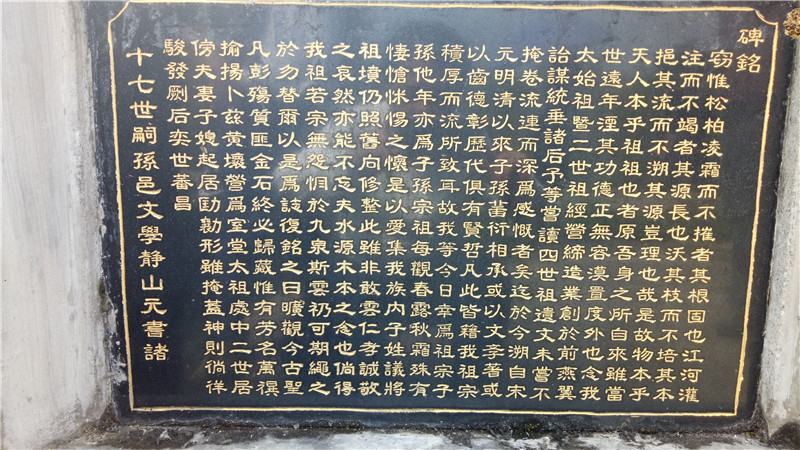 碑銘
窃惟松柏凌霜而不摧者其根固也江河灌
注而不竭者其源長也沃其枝而不培其本
挹其流而不溯其源豈理也哉是故物本乎
天人本乎祖祖也者原吾身之所自來雖當
世遠年湮其功德正無容漠置度外也念我
太始祖暨二世祖經營締造業創於前燕翼
詒謀統垂諸后予等嘗讀四世祖遺文未嘗不
掩卷流連而深爲感慨者矣迄於今溯自宋
元明清以來子孫蕃衍相承或以文孝著或
以齒德彰歷代俱有賢哲凡此皆籍我祖宗
積厚而流所致耳故我等今日幸爲祖宗子
孫他年亦爲子孫宗祖每觀春露秋霜殊有
悽愴怵惕之懷是以愛集我族内子姓議將
祖墳仍照舊向修整此雖非敢雲仁孝誠敬
之哀然亦能不忘夫水源木本之念也倘得
我祖若宗無怨恫於九泉斯雲礽可期繩之
於勿替爾以是爲誌復銘之曰曠觀今古聖
凡彭殤質匪金石終必歸藏惟有芳名萬禩
揄揚卜兹黄壤營爲室堂太祖處中二世居
傍夫妻子媳起居勷形雖掩蓋神則徜徉
駿發厥后奕世蕃昌
十七世嗣孫邑文學静山元書諸